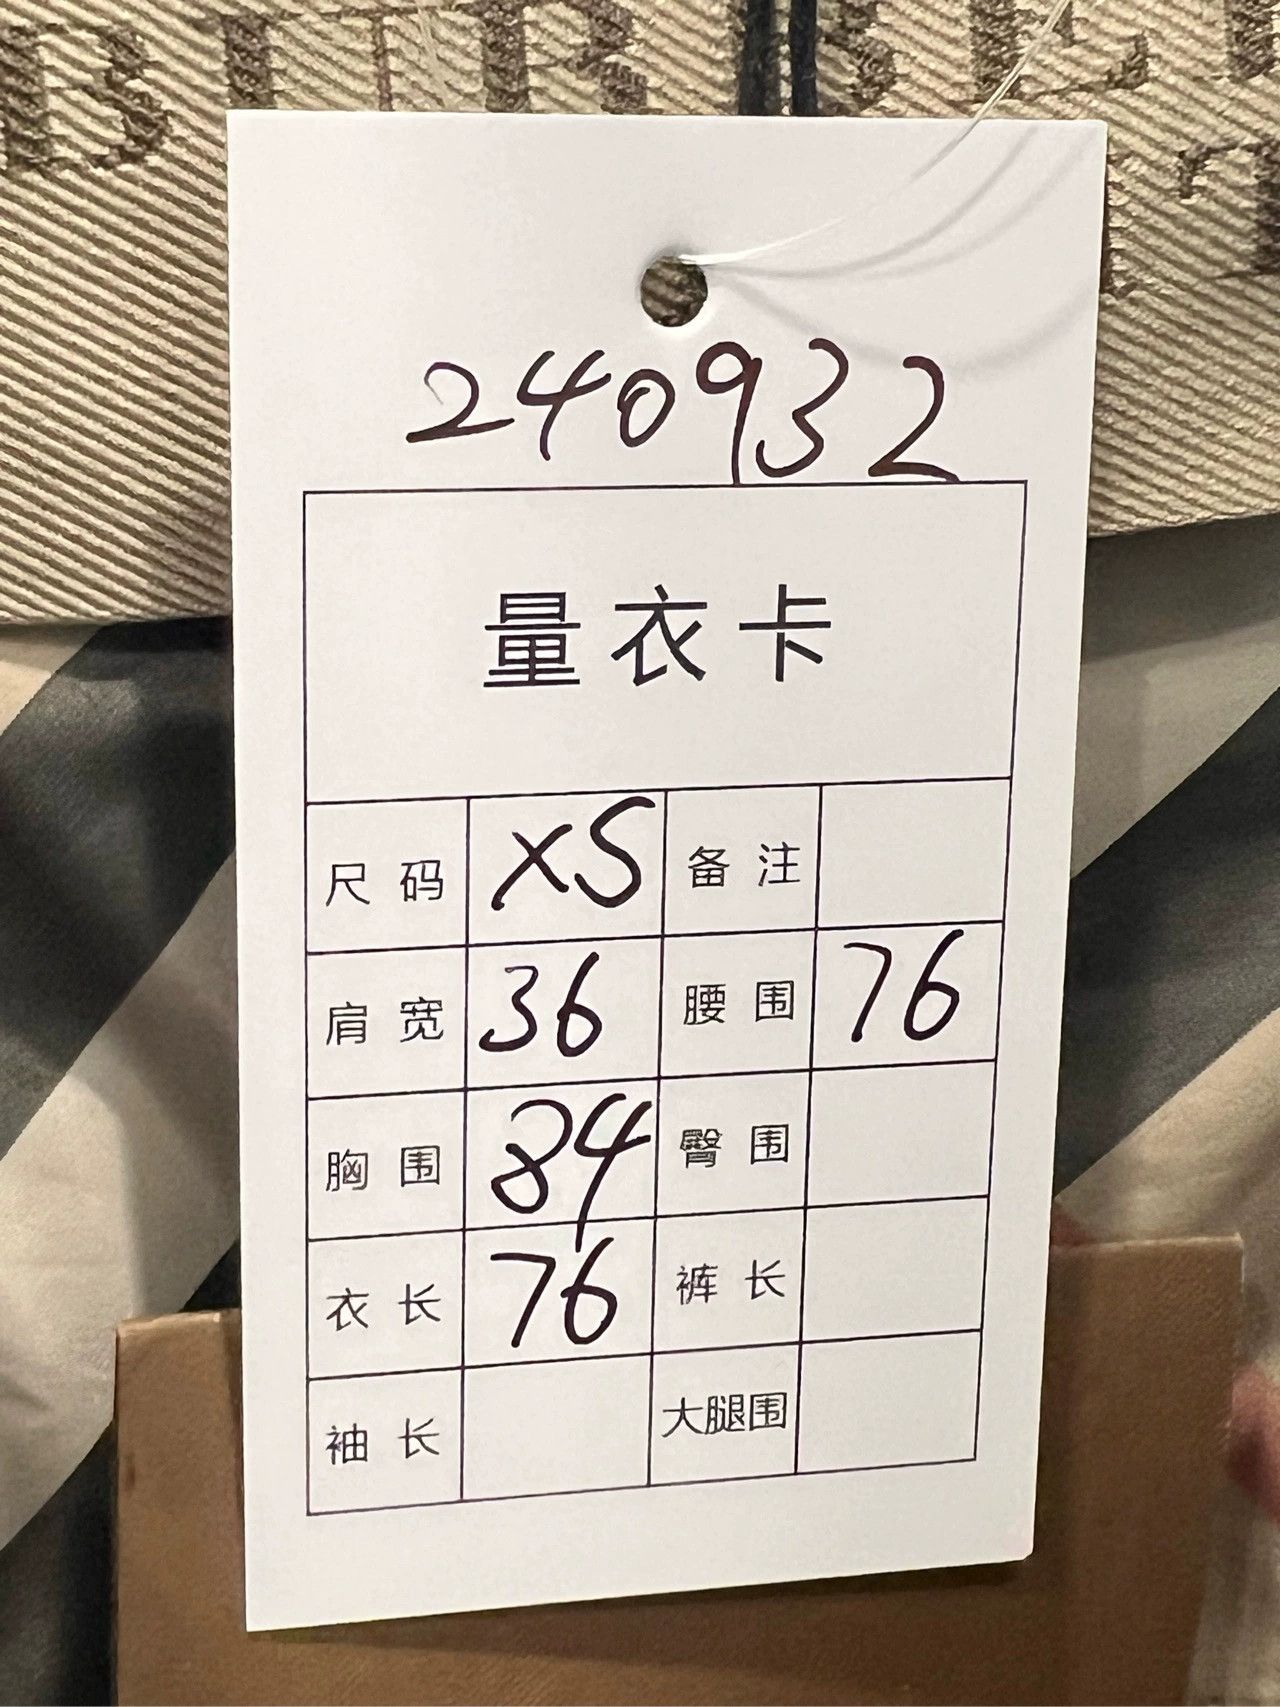 240932
量衣卡
尺码 XS 备注
肩宽 36 腰围 76
胸围 84 臀围
衣长 76 裤长
袖长 大腿围